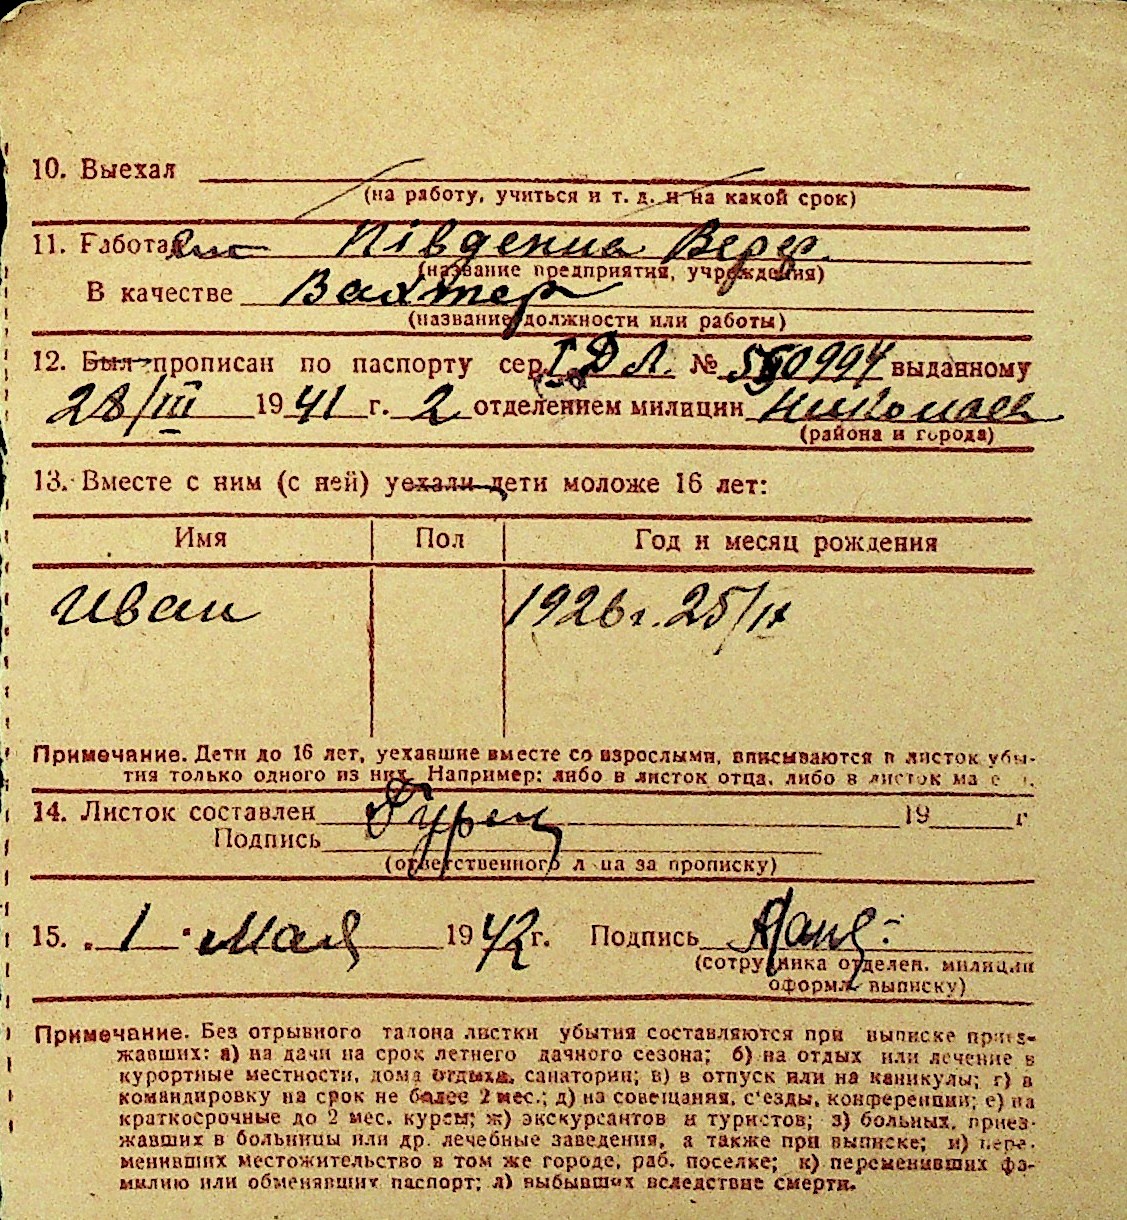 10. Выехал
(на работу, учиться и т. д. и на какой срок)
11. Работает Південна Верф.
(название предприятия, учреждения)
В качестве Вахтер
(название должности или работы)
12. Был прописан по паспорту сер. I ДЛ. № 550994 выданному
28/III 1941 г. 2 отделением милиции Николаев
(района и города)
13. Вместе с ним (с ней) уехали дети моложе 16 лет:
Имя Пол Год и месяц рождения
Иван 1926 г. 25/IX
Примечание. Дети до 16 лет, уехавшие вместе со взрослыми, вписываются в листок убы-
тия только одного из них. Например: либо в листок отца, либо в листок ма е и.
14. Листок составлен 19 г
Подпись
(ответственного л ца за прописку)
15. 1 Мая 1942 г. Подпись
(сотрудника отделен. милиции
оформл. выписку)
Примечание. Без отрывного талона листки убытия составляются при выписке приез-
жавших: а) на дачи на срок летнего дачного сезона; б) на отдых или лечение в
курортные местности, дома отдыха, санатории; в) в отпуск или на каникулы; г) в
командировку на срок не более 2 мес.; д) на совещания, с'езды, конференции; е) на
краткосрочные до 2 мес. курсы; ж) экскурсантов и туристов; з) больных, приез-
жавших в больницы или др. лечебные заведения, а также при выписке; и) пере-
менивших местожительство в том же городе, раб. поселке; к) переменивших фа-
милию или обменявших паспорт; л) выбывших вследствие смерти.